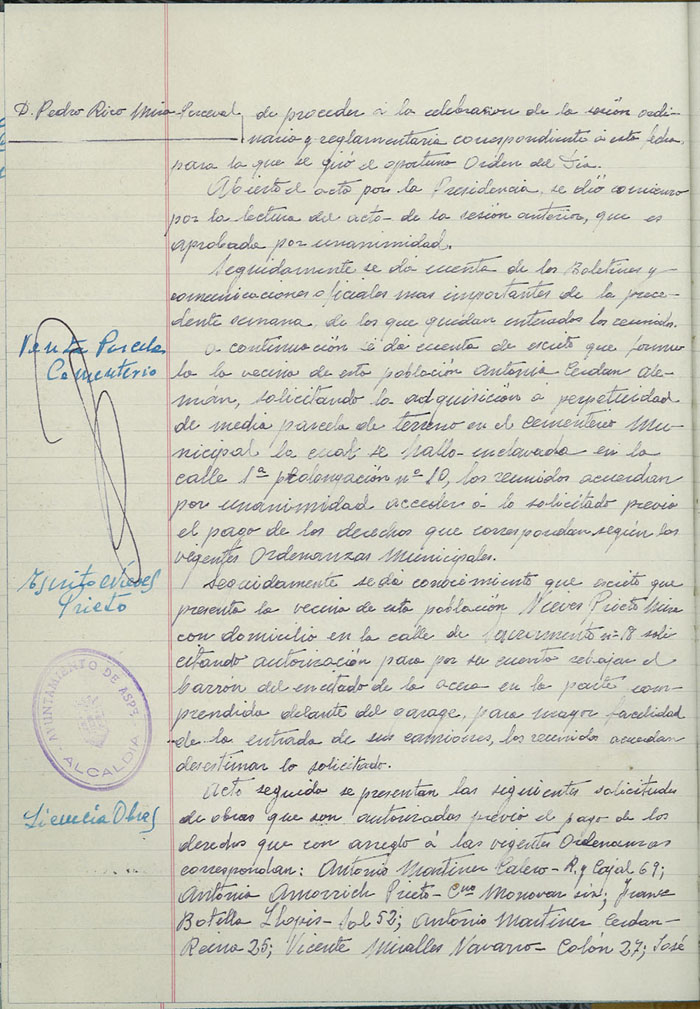 D. Pedro Rico Mira-Perceval
de proceder á la celebracion de la sesión ordi-
naria y reglamentaria correspondiente á esta fecha,
para la que se giró el oportuno Orden del Día.
Abierto el acto por la Presidencia, se dió comienzo
por la lectura del acta de la sesión anterior, que es
aprobada por unanimidad.
Seguidamente se dá cuenta de los Boletines y
comunicaciones oficiales mas importantes de la prece-
dente semana de los que quedan enterados los reunidos.
Venta Parcela
Cementerio
A continuación se dá cuenta de escrito que formu-
la la vecina de esta población Antonia Cerdan Ale-
mán, solicitando la adquisición a perpetuidad
de media parcela de terreno en el cementerio Mu-
nicipal la cual se halla enclavada en la
calle 1ª prolongación nº 10, los reunidos acuerdan
por unanimidad acceder á lo solicitado previo
el pago de los derechos que correspondan según las
vegentes Ordenanzas Municipales.
Escrito Nieves
Prieto
Seguidamente se da conocimiento que escrito que
presenta la vecina de esta población Nieves Prieto Mira
con domicilio en la calle de Sacramento nº 18 soli-
citando autorización para por su cuenta rebajar el
barrón del encitado de la acera en la parte com-
prendida delante del garage, para mayor facilidad
de la entrada de sus camiones, los reunidos acuerdan
desestimar lo solicitado.
AYUNTAMIENTO DE ASPE
ALCALDIA
Licencia Obras
Acto seguido se presentan las siguientes solicitudes
de obras que son autorizadas previo el pago de los
derechos que con arreglo á las vigentes Ordenanzas
correspondan: Antonio Martinez Calero- R. y Cajal 69;
Antonia Amorrich Prieto- Cno Monovar
Botella Llopis- Sol 52; Antonio Martinez Cerdan-
Reina 25; Vicente Miralles Navarro- Colón 27; José